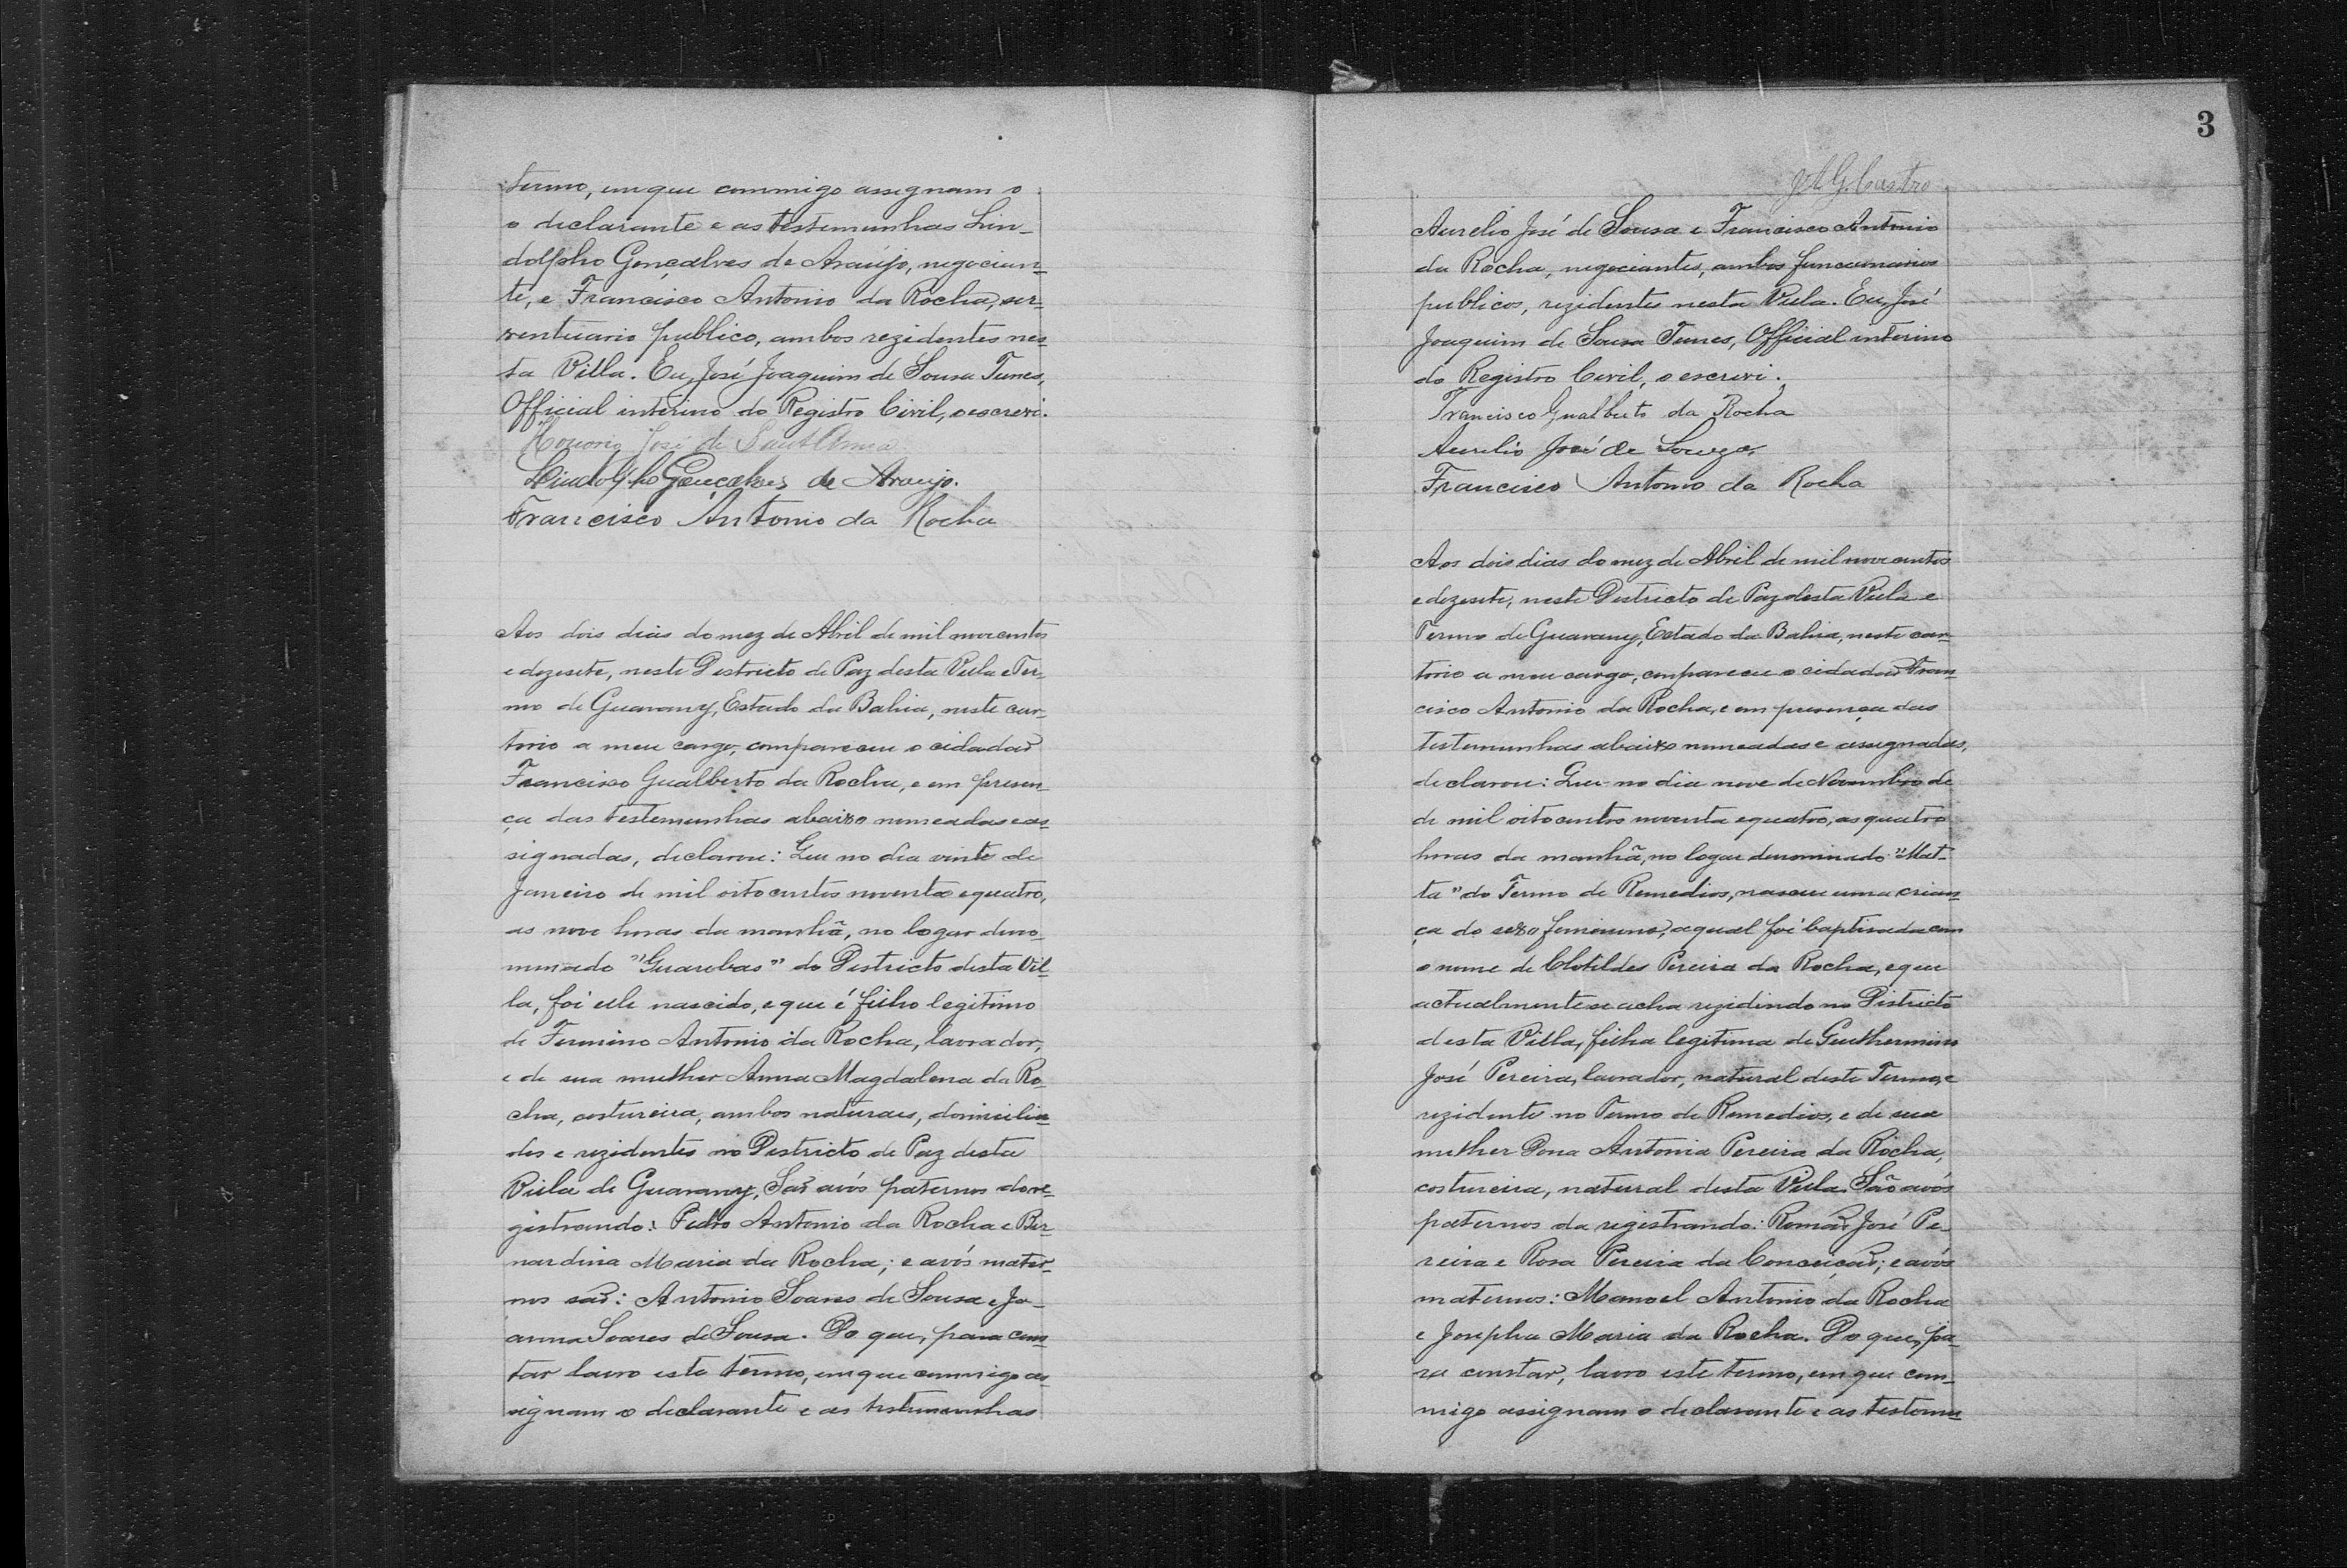 termo, em que commigo assignam o
o declarante e as testemunhas Lin-
dolpho Gonçalves de Araújo, negocian-
te, e Francisco Antonio da Rocha, ser-
ventuario publico, ambos rezidentes nes-
ta Villa. Eu, José Joaquim de Sousa Tunes,
Official interino do Registro Civil, o escrevi.
José de Sant'Anna
Lindolpho Gonçalves de Araujo.
Francisco Antonio da Rocha
Aos dois dias do mez de Abril de mil novecentos
e dezesete, neste Districto de Paz desta Villa e Ter-
mo de Guarany, Estado da Bahia, neste car-
torio a meu cargo, compareceu o cidadão
Francisco Gualberto da Rocha, e em presen-
ça das testemunhas abaixo nomeadas e as-
signadas, declarou: Que no dia vinte de
Janeiro de mil oitocentos noventa e quatro,
as nove horas da manhã, no logar deno-
minado "Guaribas" do Districto desta Vil-
la, foi elle nascido, e que é filho legitimo
de Firmino Antonio da Rocha, lavrador,
e de sua mulher Anna Magdalena da Ro-
cha, costureira, ambos naturaes, domicilia-
dos e rezidentes no Districto de Paz desta
Villa de Guarany, São avós paternos do re-
gistrando: Pedro Antonio da Rocha e Ber-
nardina Maria da Rocha; e avós mater-
nos são: Antonio Soares de Sousa e Jo-
anna Soares de Sousa. Do que, para cons-
tar lavro este termo, em que commigo as-
signam o declarante e as testemunhas
3
J A G. Castro
Aurelio José de Sousa e Francisco Antonio
da Rocha, negociantes, ambos funcionarios
publicos, rezidentes nesta Villa. Eu, José
Joaquim de Sousa Tunes, Official interino
do Registro Civil, o escrevi.
Francisco Gualberto da Rocha
Aurelio José de Souza
Francisco Antonio da Rocha
Aos dois dias do mez de Abril de mil novecentos
e dezesete, neste Districto de Paz desta Villa e
Termo de Guarany, Estado da Bahia, neste car-
torio a meu cargo, compareceu o cidadão Fran-
cisco Antonio da Rocha, e em presença das
testemunhas abaixo nomeadas e assignadas,
declarou: Que no dia nove de Novembro de
de mil oitocentos noventa e quatro, as quatro
horas da manhã, no logar denominado "Mat-
ta" do Termo de Remedios, nasceu uma crian-
ça do sexo femenino, a qual foi baptisada com
o nome de Clotildes Pereira da Rocha, e que
actualmente se acha rezidindo no Districto
desta Villa, filha legitima de Guilhermino
José Pereira, lavrador, natural deste Termo, e
rezidente no Termo de Remedios, e de sua
mulher Dona Antonia Pereira da Rocha,
costureira, natural desta Villa. São avós
paternos da registranda: Romão José Pe-
reira e Rosa Pereira da Conceição; e avós
maternos: Manoel Antonio da Rocha
e Josepha Maria da Rocha. Do que, pa-
ra constar, lavro este termo, em que com-
migo assignam o declarante e as testemu-